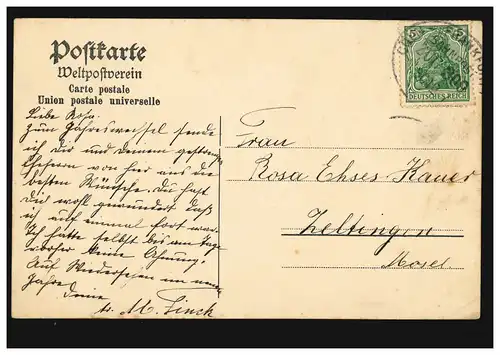 Postkarte
Weltpostverein
Carte postale
Union postale universelle
DEUTSCHES REICH
Liebe Rosa.
Zum Jahreswechsel sende
ich Dir und Deinem gestrengen
Eheherrn von hier aus die
besten Wünsche. Du hast
Dich wohl gewundert daß
ich auf einmal fort war.
Ich hatte selbst bis am Tage
vorher keine Ahnung.
Auf Wiedersehen im neuen
Jahre
Deine
M. Finck
Frau
Rosa Ehses Kauer
Zeltingen
Mosel.